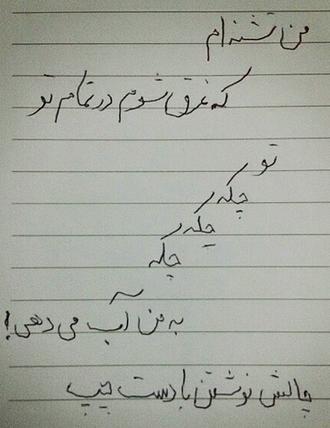 من تشنه ام
که غرق شوم در تمام تو
تو
چکه
چکه
چکه
به من آب می دهی!
چالش نوشتن با دست چپ